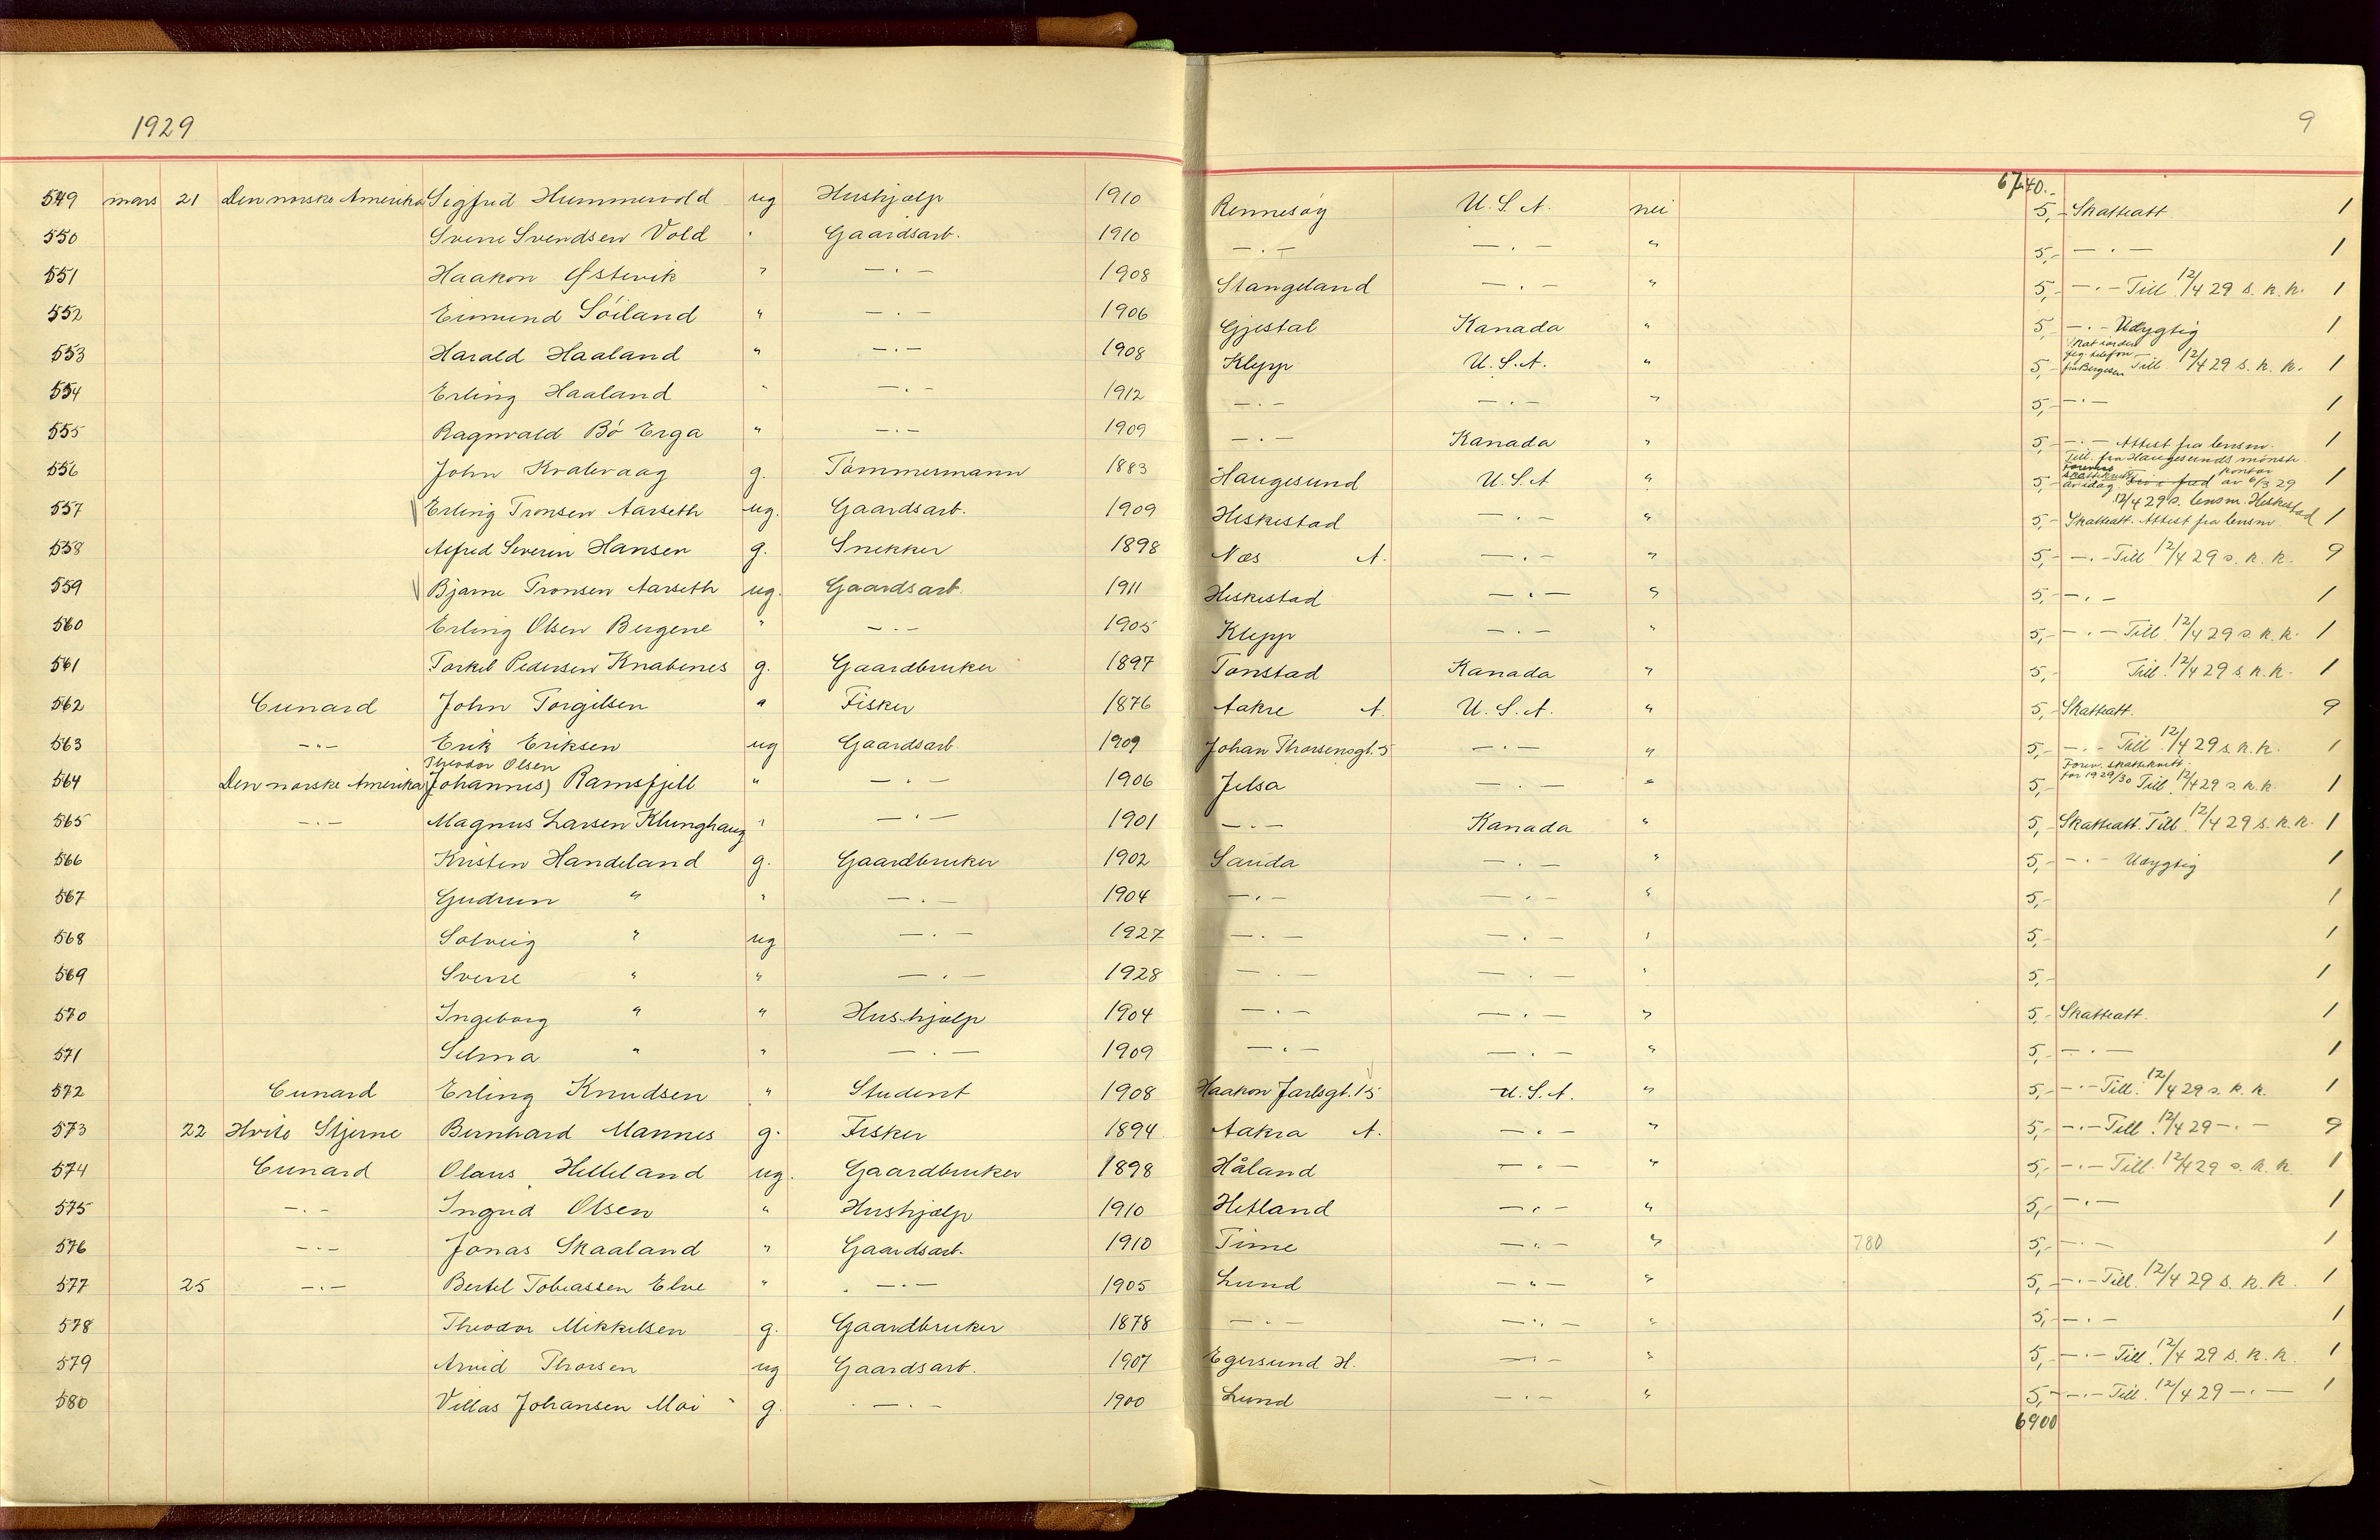 1929
9
6740.-
549 mars 21 Den norske Amerika Sigfrid Hummervold ug Hushjælp 1910 Rennesøy U.S.A. nei 5,- Skatteatt. 1
550 Sverre Svendsen Vold " Gaardsarb. 1910 -.- -.- " 5,- -.- 1
551 Haakon Østevik " -.- 1908 Stangeland -.- " 5,- -.- Till. 12/4 29 s.k.k. 1
552 Eimund Söiland " -.- 1906 Gjestal Kanada " 5,- -.- Udygtig 1
553 Harald Haaland " -.- 1908 Klepp U.S.A. " 5,- Till. 12/4 29 s.k.k. 1
554 Erling Haaland " -.- 1912 -.- -.- " 5,- -.- 1
555 Ragnvald Bö Erga " -.- 1909 -.- Kanada " 5,- -.- Attest fra lensm. 1
Till. fra Haugesunds mönstr. kontor
556 John Kralevaag g. Tömmermann 1883 Haugesund U.S.A " 5,- av idag. av 6/3 29 1
12/4 29 s. lensm. Heskestad
557 Erling Tronsen Aarseth ug. Gaardsarb. 1909 Heskestad -.- " 5,- Skatteatt. Attest fra lensm 1
558 Alfred Severin Hansen g. Snekker 1898 Næs A. -.- " 5,- -.- Till 12/4 29 s.k.k. 9
559 Bjarne Tronsen Aarseth ug. Gaardsarb. 1911 Heskestad -.- " 5,- -.- 1
560 Erling Olsen Bergene " -.- 1905 Klepp -.- " 5,- -.- Till. 12/4 29 s.k.k. 1
561 Torkel Pedersen Knabenes g. Gaardbruker 1897 Tonstad Kanada " 5,- Till. 12/4 29 s.k.k. 1
562 Cunard John Torgilsen " Fisker 1876 Aakre A. U.S.A. " 5,- Skatteatt. 9
563 -.- Erik Eriksen ug Gaardsarb. 1909 Johan Thorsensgt. 5 -.- " 5,- -.- Till. 12/4 29 s.k.k. 1
Theodor Olsen
Forev. skattekvitt.
564 Den norske Amerika (Johannes) Ramsfjell " -.- 1906 Jelsa -.- " 5,- for 1929/30 Till. 12/4 29 s.k.k. 1
565 -.- Magnus Larsen Klunghaug " -.- 1901 -.- Kanada " 5,- Skatteatt. Till 12/4 29 s.k.k. 1
566 Kristen Handeland g. Gaardbruker 1902 Sauda -.- " 5,- -.- Udygtig 1
567 Gudrun " " -.- 1904 -.- -.- " 5,- 1
568 Solveig " ug -.- 1927 -.- -.- " 5,- 1
569 Sverre " " -.- 1928 -.- -.- " 5,- 1
570 Ingeborg " " Hushjælp 1904 -.- -.- " 5,- Skatteatt. 1
571 Selma " " -.- 1909 -.- -.- " 5,- -.- 1
572 Cunard Erling Knudsen " Student 1908 Haakon Jarlsgt. 15 U.S.A. " 5,- -.- Till. 12/4 29 s.k.k. 1
573 22 Hvite Stjerne Bernhard Mannes g. Fisker 1894 Aakra A. -.- " 5,- -.- Till. 12/4 29 -.- 9
574 Cunard Olaus Helleland ug. Gaardbruker 1898 Håland -.- " 5,- -.- Till. 12/4 29 s.k.k. 1
575 -.- Ingrid Olsen " Hushjælp 1910 Hetland -.- " 5,- -.- 1
576 -.- Jonas Skaaland " Gaardsarb. 1910 Time -.- " 780 5,- -.- 1
577 25 -.- Bertel Tobiassen Elve " -.- 1905 Lund -.- " 5,- -.- Till. 12/4 29 s.k.k. 1
578 Theodor Mikkelsen g. Gaardbruker 1878 -.- -.- " 5,- -.- 1
579 Arvid Thorsen ug Gaardsarb. 1907 Egersund H. -.- " 5,- -.- Till. 12/4 29 s.k.k. 1
580 Villas Johansen Moi g. -.- 1900 Lund -.- " 5,- -.- Till. 12/4 29 -.- 1
6900